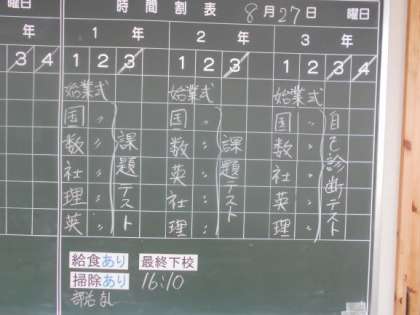 曜日 時間割表 8月27日 曜日
年 1年 2年 3年
3 4 1 2 3 1 2 3 1 2 3 4
始業式 始業式 始業式
国 〃 国 〃 国 〃 自
数 〃 課 数 〃 課 数 〃 己
社 〃 題 英 〃 題 社 〃 診断
理 〃 テス 社 〃 テス 英 〃 テス
英 〃 ト 理 〃 ト 理 〃 ト
給食あり 最終下校
掃除あり 16:10
部活なし